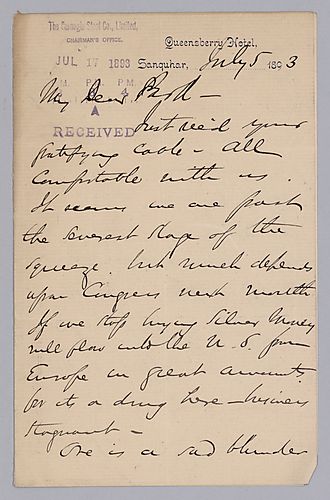 The Carnegie Steel Co., Limited,
CHAIRMAN'S OFFICE.
JUL 17 1893
M. P M
4
RECEIVED
Queensberry Hotel,
Sanquhar, July 5 1893
My Dear
Just rec'd your
gratifying cable - all
comfortable with us.
It seems we are past
the severest stage of the
squeeze. but much depends
upon Congress next month
If we stop buying Silver Money
will flow into the U.S. from
Europe in great amounts
for its a drug here - business
stagnant -
Ore is a sad blunder